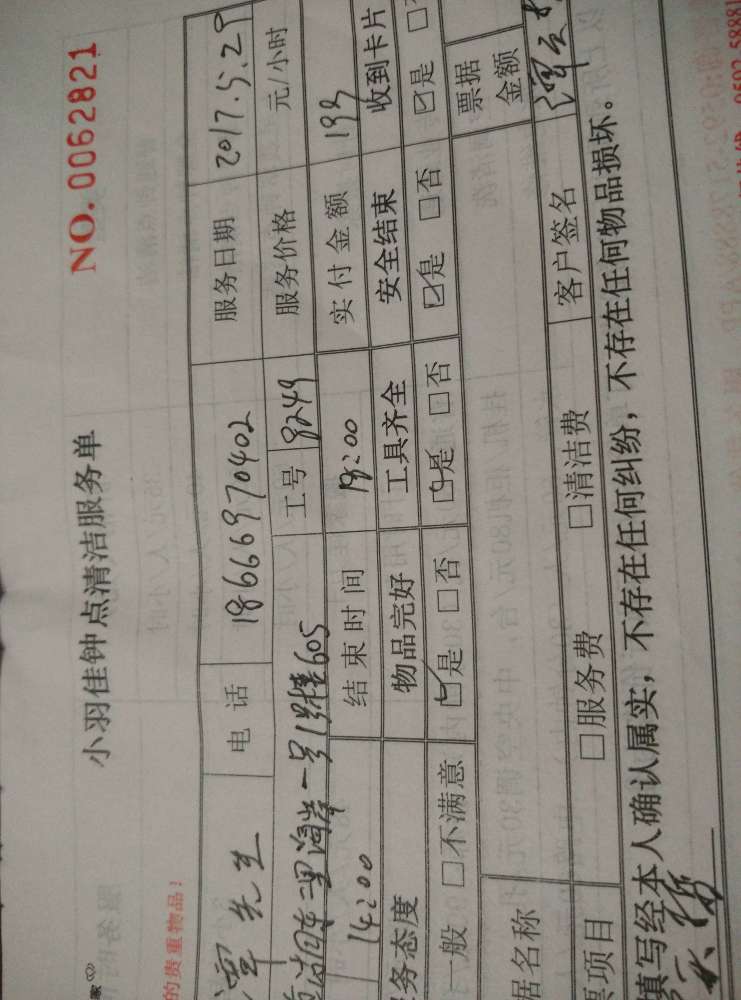 NO.0062821
小羽佳钟点清洁服务单
的贵重物品！
先生 电话 18666970402 服务日期 2017.5.29
一号1号楼605 工号 8249 服务价格 元/小时
14:00 结束时间 18:00 实付金额 193
务态度 物品完好 工具齐全 安全结束 收到卡片
一般 □不满意 ☑是 □否 ☑是 □否 ☑是 □否 ☑是
据名称 票据金额
票项目 □服务费 □清洁费 客户签名
填写经本人确认属实，不存在任何纠纷，不存在任何物品损坏。